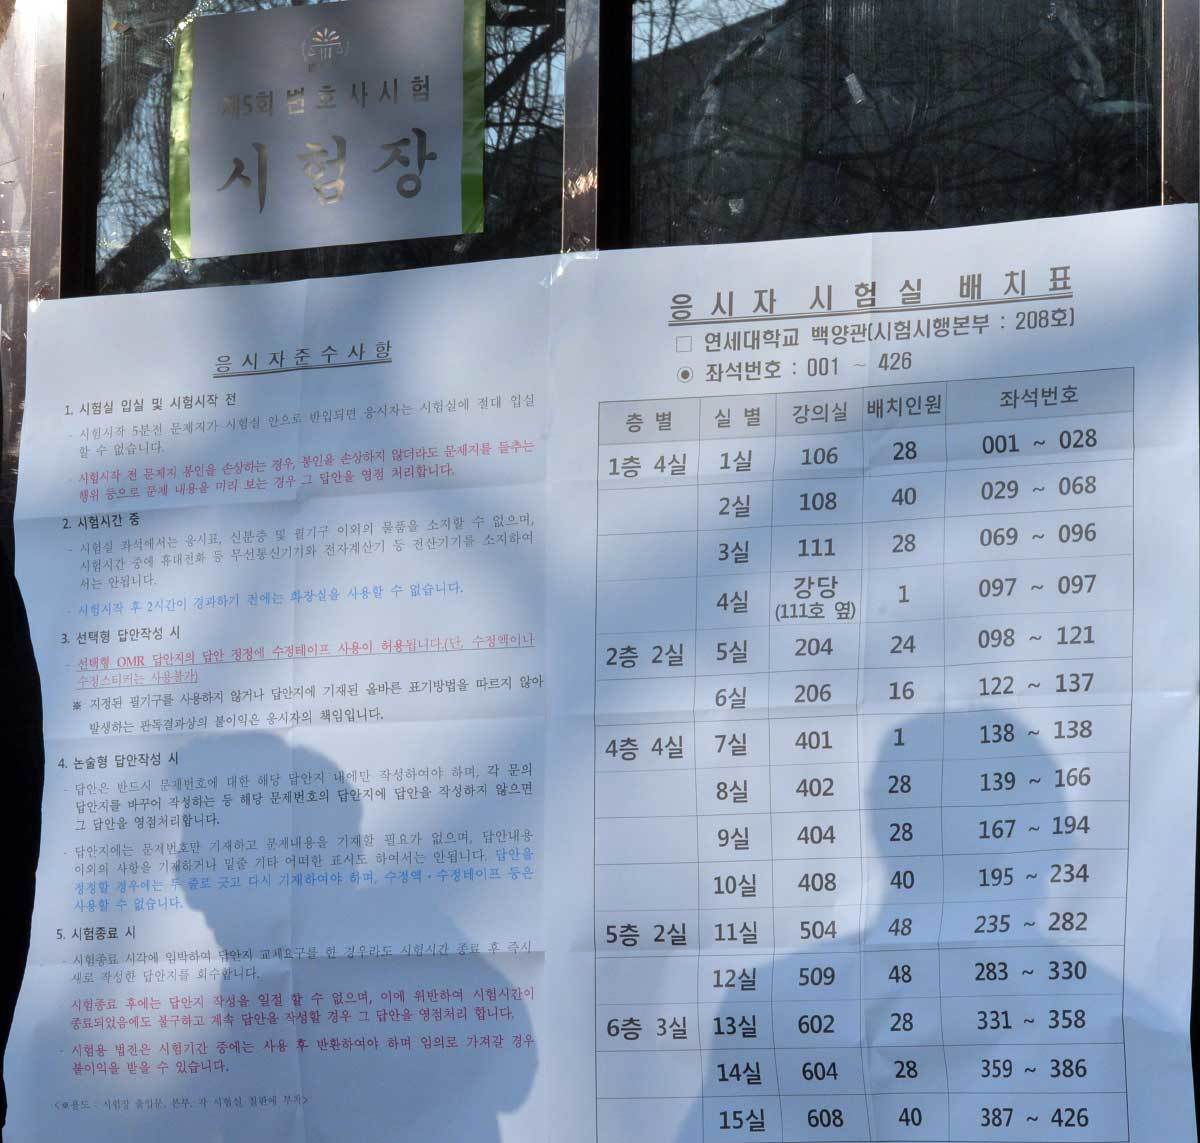 제5회 변호사시험
시험장
응시자준수사항
1. 시험실 입실 및 시험시작 전
- 시험시작 5분전 문제지가 시험실 안으로 반입되면 응시자는 시험실에 절대 입실
할 수 없습니다.
- 시험시작 전 문제지 봉인을 손상하는 경우, 봉인을 손상하지 않더라도 문제지를 들추는
행위 등으로 문제 내용을 미리 보는 경우 그 답안을 영점 처리합니다.
2. 시험시간 중
- 시험실 좌석에서는 응시표, 신분증 및 필기구 이외의 물품을 소지할 수 없으며,
시험시간 중에 휴대전화 등 무선통신기기와 전자계산기 등 전산기기를 소지하여
서는 안됩니다.
- 시험시작 후 2시간이 경과하기 전에는 화장실을 사용할 수 없습니다.
3. 선택형 답안작성 시
- 선택형 OMR 답안지의 답안 정정에 수정테이프 사용이 허용됩니다.(단, 수정액이나
수정스티커는 사용불가)
※ 지정된 필기구를 사용하지 않거나 답안지에 기재된 올바른 표기방법을 따르지 않아
발생하는 판독결과상의 불이익은 응시자의 책임입니다.
4. 논술형 답안작성 시
- 답안은 반드시 문제번호에 대한 해당 답안지 내에만 작성하여야 하며, 각 문의
답안지를 바꾸어 작성하는 등 해당 문제번호의 답안지에 답안을 작성하지 않으면
그 답안을 영점처리합니다.
- 답안지에는 문제번호만 기재하고 문제내용을 기재할 필요가 없으며, 답안내용
이외의 사항을 기재하거나 밑줄 기타 어떠한 표시도 하여서는 안됩니다. 답안을
정정할 경우에는 두 줄로 긋고 다시 기재하여야 하며, 수정액·수정테이프 등은
사용할 수 없습니다.
5. 시험종료 시
- 시험종료 시각에 임박하여 답안지 교체요구를 한 경우라도 시험시간 종료 후 즉시
새로 작성한 답안지를 회수합니다.
- 시험종료 후에는 답안지 작성을 일절 할 수 없으며, 이에 위반하여 시험시간이
종료되었음에도 불구하고 계속 답안을 작성할 경우 그 답안을 영점처리 합니다.
- 시험용 법전은 시험기간 중에는 사용 후 반환하여야 하며 임의로 가져갈 경우
불이익을 받을 수 있습니다.
<※용도 : 시험장 출입문, 본부, 각 시험실 칠판에 부착>
응시자 시험실 배치표
□ 연세대학교 백양관(시험시행본부 : 208호)
◉ 좌석번호 : 001 ~ 426
층별 실별 강의실 배치인원 좌석번호
1층 4실 1실 106 28 001 ~ 028
2실 108 40 029 ~ 068
3실 111 28 069 ~ 096
4실 강당 (111호 옆) 1 097 ~ 097
2층 2실 5실 204 24 098 ~ 121
6실 206 16 122 ~ 137
4층 4실 7실 401 1 138 ~ 138
8실 402 28 139 ~ 166
9실 404 28 167 ~ 194
10실 408 40 195 ~ 234
5층 2실 11실 504 48 235 ~ 282
12실 509 48 283 ~ 330
6층 3실 13실 602 28 331 ~ 358
14실 604 28 359 ~ 386
15실 608 40 387 ~ 426